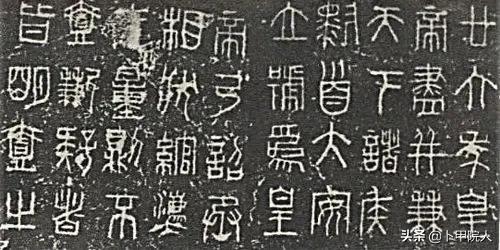 廿六年皇
帝盡并兼
天下諸侯
黔首大安
立號為皇
帝乃詔丞
相狀綰灋
度量則不
壹歉疑者
皆明壹之
头条 @卜甲院人